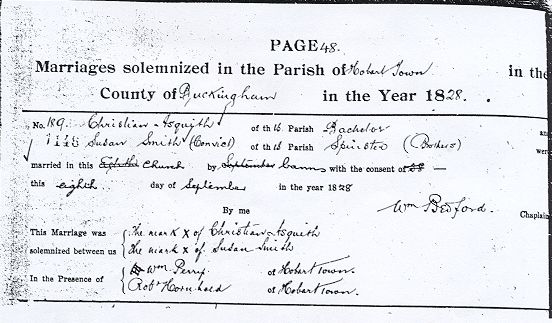 PAGE 48.
Marriages solemnized in the Parish of Hobart Town in the
County of Buckingham in the Year 1828.
No. 189. Christian Asquith of this Parish Bachelor an
Susan Smith (Convict) of this Parish Spinster (Bothers) wer
married in this Eighth Church by September banns with the consent of
this eighth day of September in the year 1828
By me
Wm Bedford. Chaplai
This Marriage was the mark X of Christian Asquith
solemnized between us the mark X of Susan Smith
In the Presence of Wm Perry of Hobart Town.
Robt of Hobart Town.